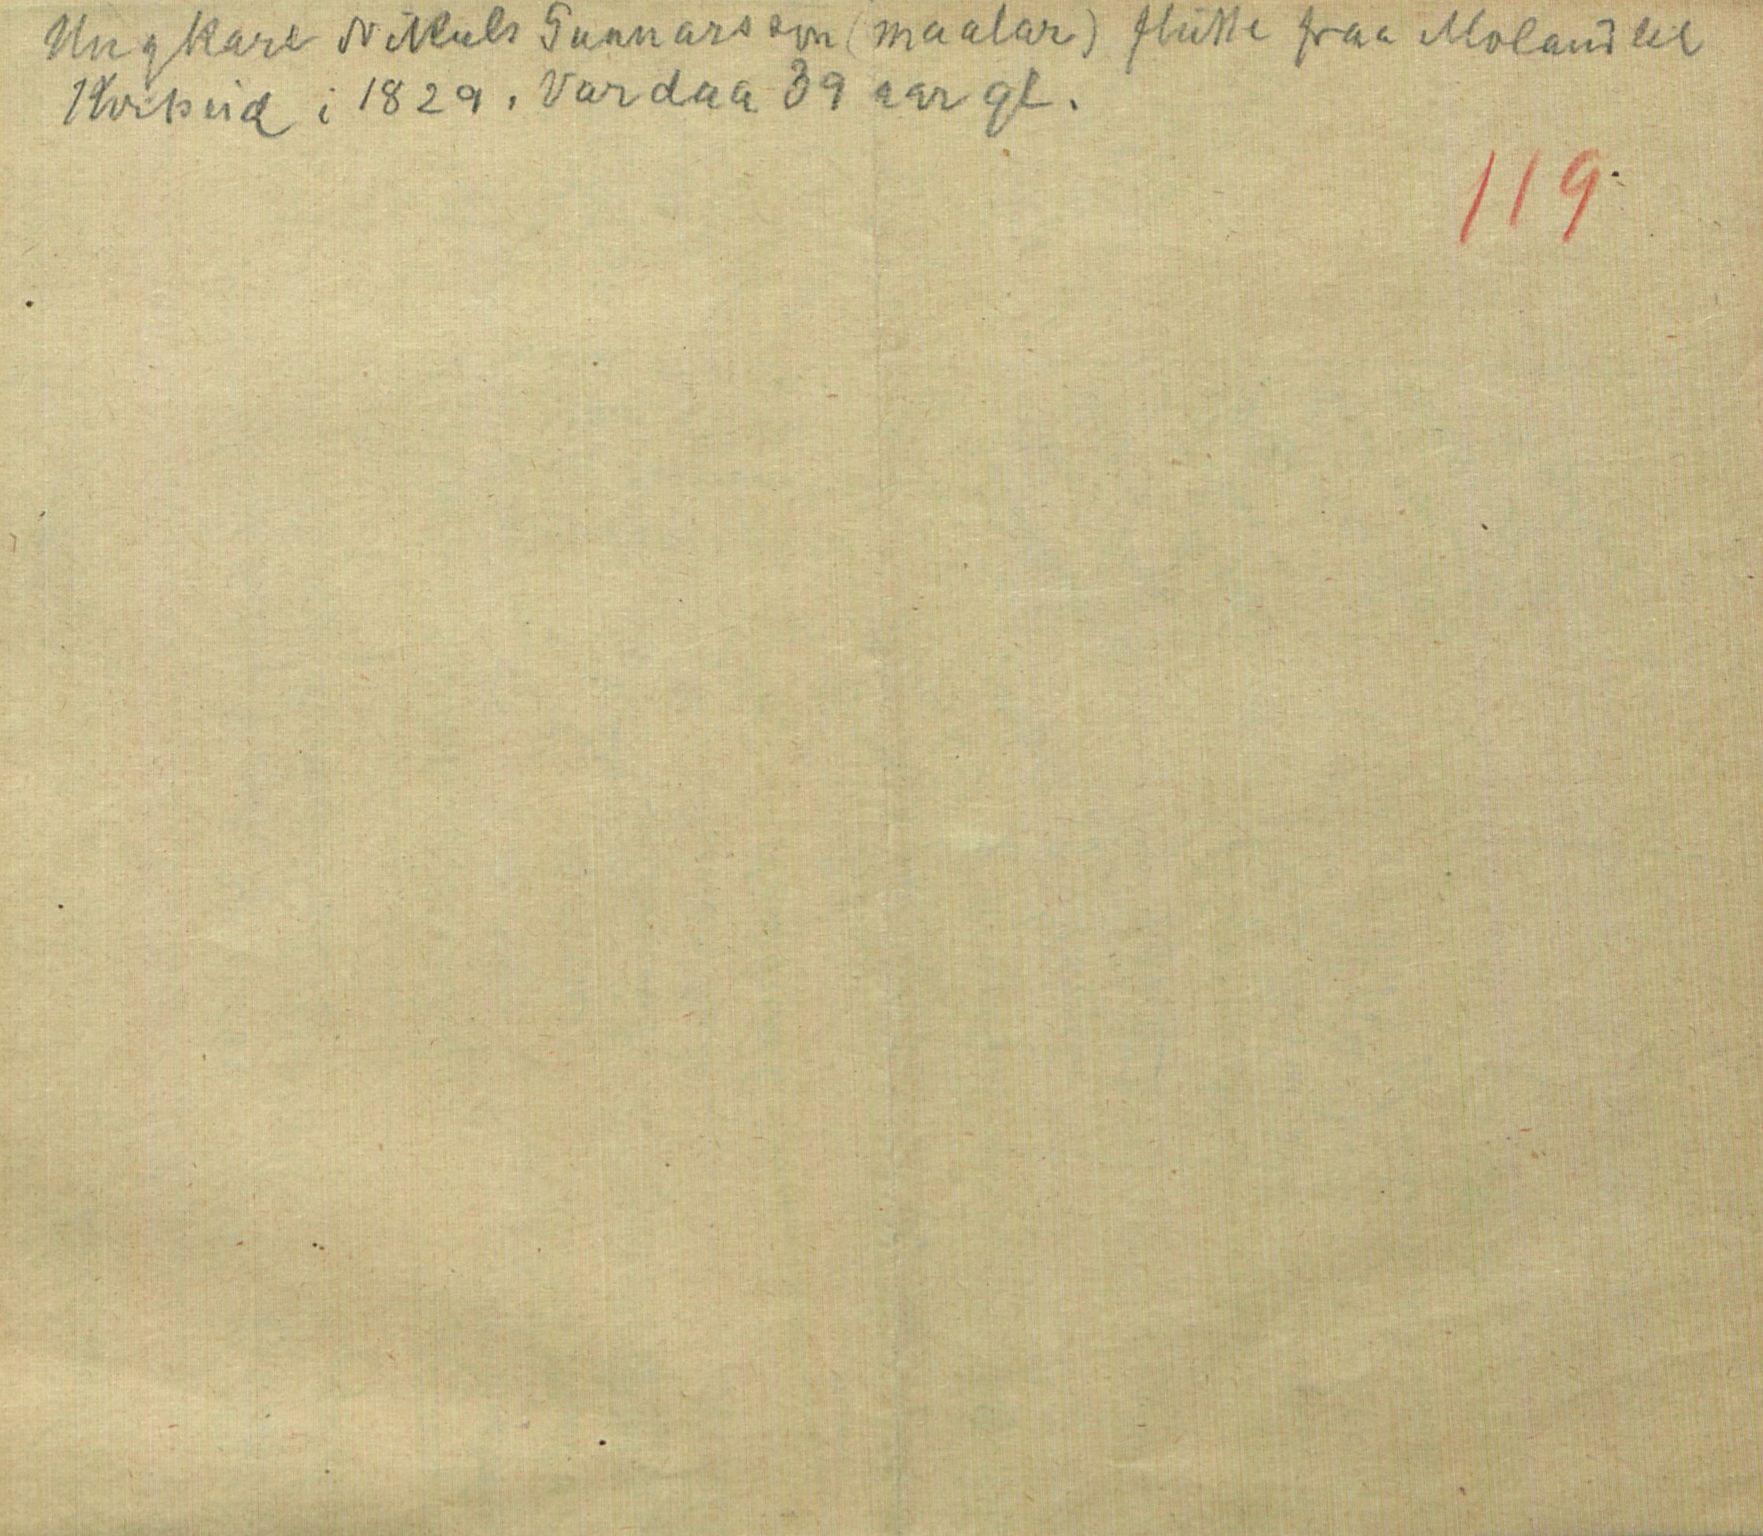 Ungkarl Nikuls Gunnarsson (maalar) flutte fraa Moland til
Kviteseid i 1829. Var daa 39 aar gl.
119